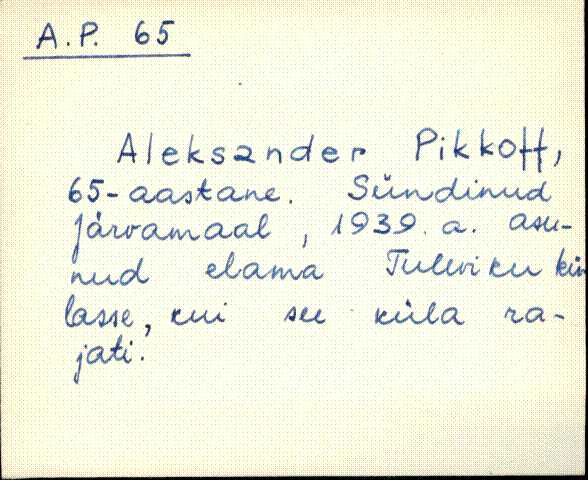 A.P. 65
Aleksander Pikkoff,
65-aastane. Sündinud
Järvamaal, 1939. a. asu-
nud elama Tuleviku kü-
lasse, kui see küla ra-
jati.